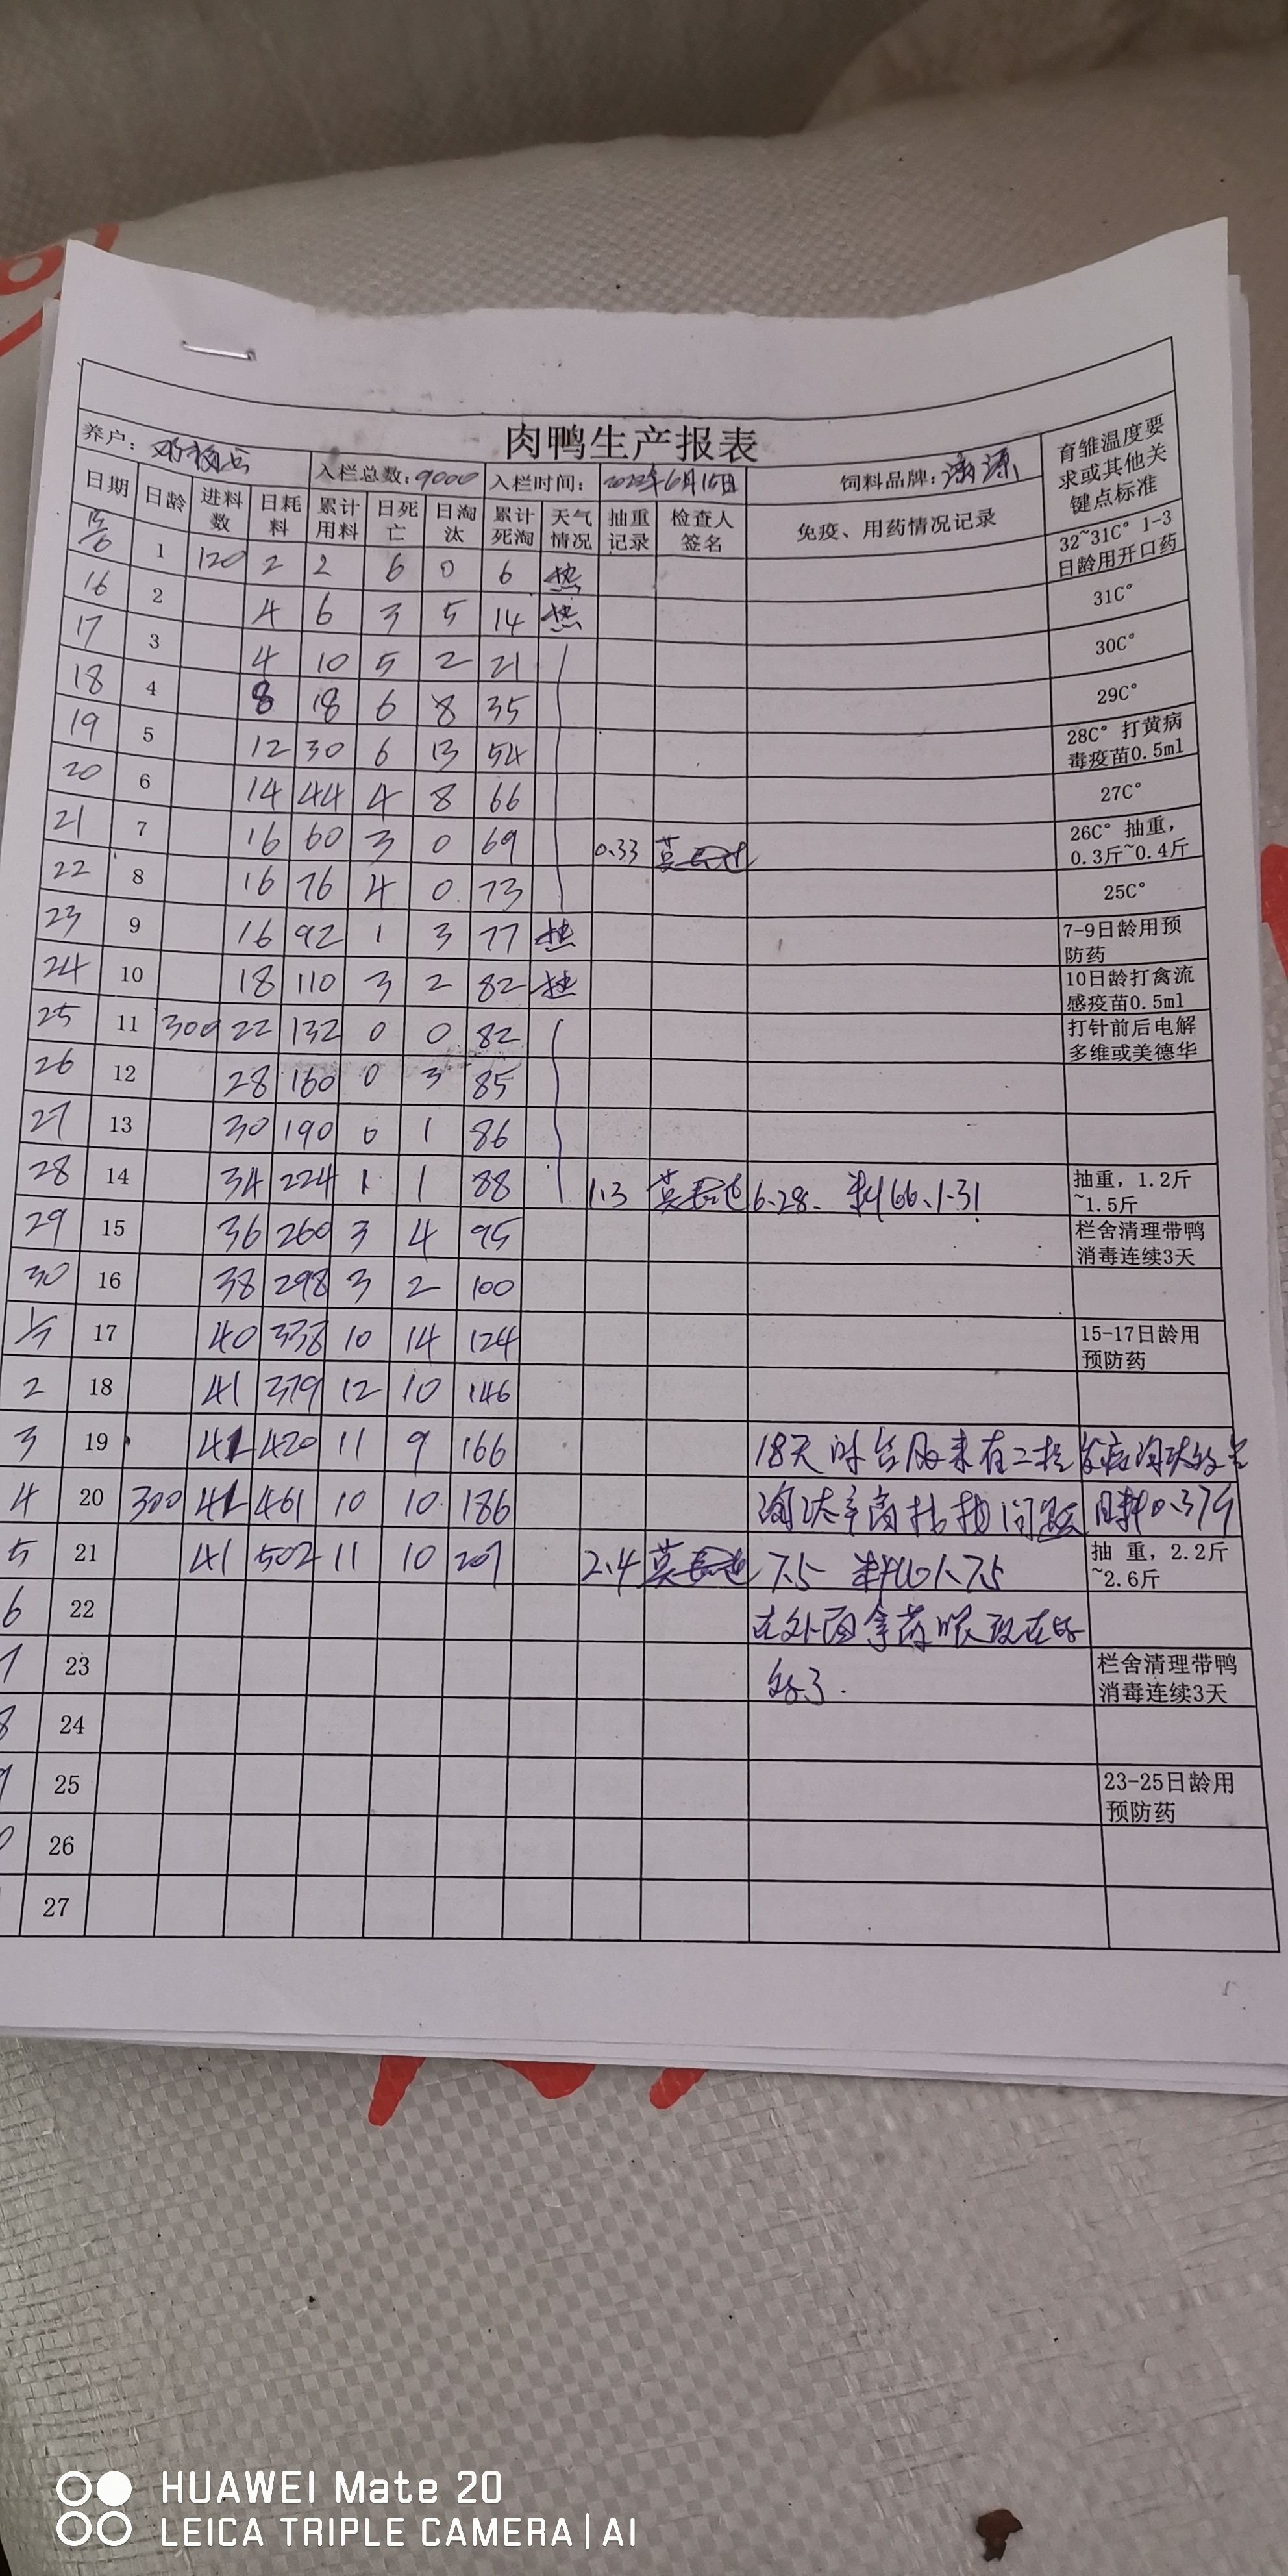 肉鸭生产报表
养户: 入栏总数:9000 入栏时间: 2022年6月15日 饲料品牌: 源 育雏温度要求或其他关键点标准
日期 日龄 进料数 日耗料 累计用料 日死亡 日淘汰 累计死淘 天气情况 抽重记录 检查人签名 免疫、用药情况记录
15/6 1 120 2 2 6 0 6 热 32~31C° 1-3日龄用开口药
16 2 4 6 3 5 14 热 31C°
17 3 4 10 5 2 21 30C°
18 4 8 18 6 8 35 29C°
19 5 12 30 6 13 54 28C° 打黄病毒疫苗0.5ml
20 6 14 44 4 8 66 27C°
21 7 16 60 3 0 69 0.33 莫 26C° 抽重，0.3斤~0.4斤
22 8 16 76 4 0 73 25C°
23 9 16 92 1 3 77 热 7-9日龄用预防药
24 10 18 110 3 2 82 热 10日龄打禽流感疫苗0.5ml
25 11 300 22 132 0 0 82 打针前后电解多维或美德华
26 12 28 160 0 3 85
27 13 30 190 0 1 86
28 14 34 224 1 1 88 1.3 莫 6-28. 料66、1.31 抽重，1.2斤~1.5斤
29 15 36 260 3 4 95 栏舍清理带鸭消毒连续3天
30 16 38 298 3 2 100
1/7 17 40 338 10 14 124 15-17日龄用预防药
2 18 41 379 12 10 146
3 19 41 420 11 9 166 18天时
4 20 300 41 461 10 10 186 淘汰率高 问题 日耗0.37斤
5 21 41 502 11 10 207 2.4 莫 7.5 料 抽 重，2.2斤~2.6斤
6 22 在外面拿药 现在好
7 23 好了. 栏舍清理带鸭消毒连续3天
8 24
9 25 23-25日龄用预防药
26
27
HUAWEI Mate 20
LEICA TRIPLE CAMERA | AI